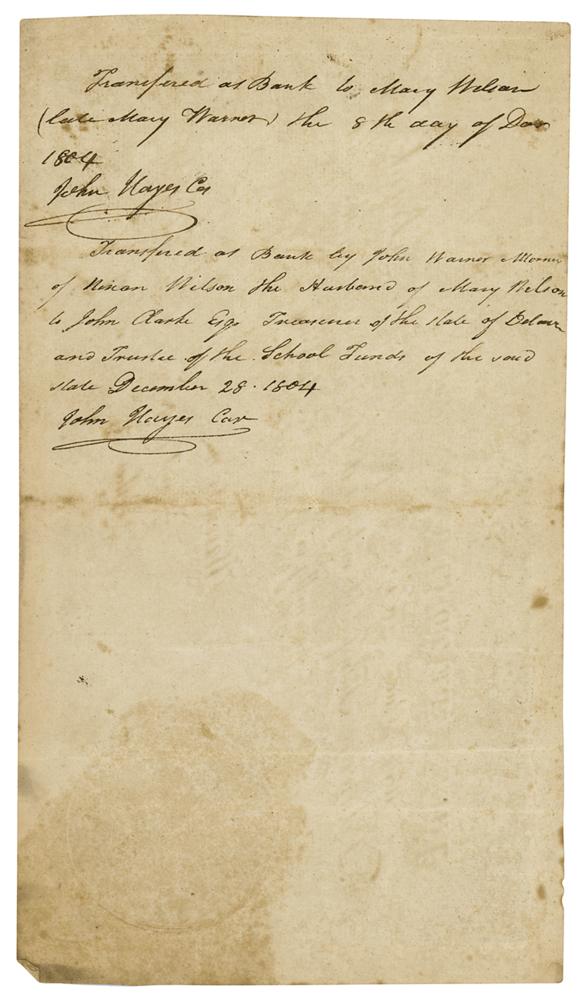 Transfered at Bank to Mary Wilson
(late Mary Warner) the 8th day of Dec
1804
John Hayes Car
Transfered at Bank by John Warner Attorney
of Nixan Wilson the Husband of Mary Wilson
to John Clarke Esqr Treasurer of the State of Delawr
and Trustee of the School Funds of the said
State December 28. 1804
John Hayes Car